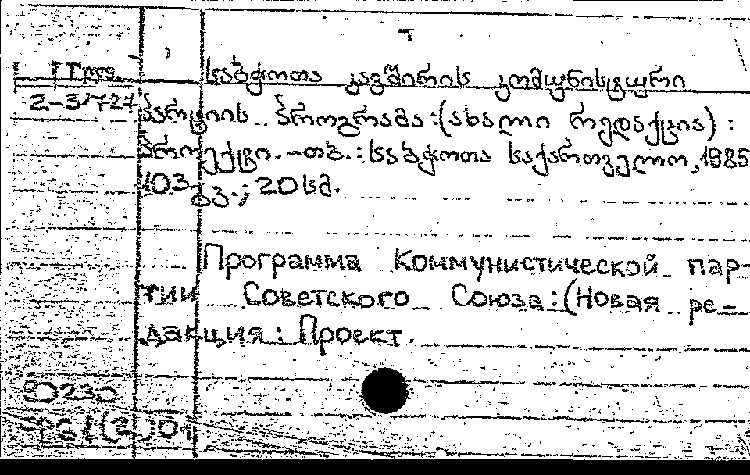 საბჭოთა კავშირის კომუნისტური
2-3/724 პარტიის პროგრამა:(ახალი რედაქცია) :
პროექტი.-თბ.:საბჭოთა საქართველო,1985
103 გვ.; 20სმ.
Программа Коммунистической пар-
тии Советского Союза:(Новая ре-
дакция: Проект.